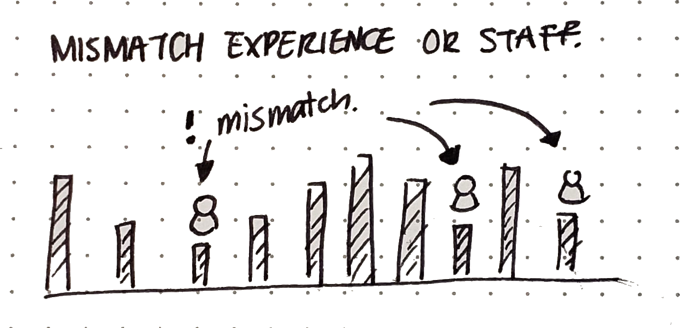 MISMATCH EXPERIENCE OR STAFF.
! mismatch.